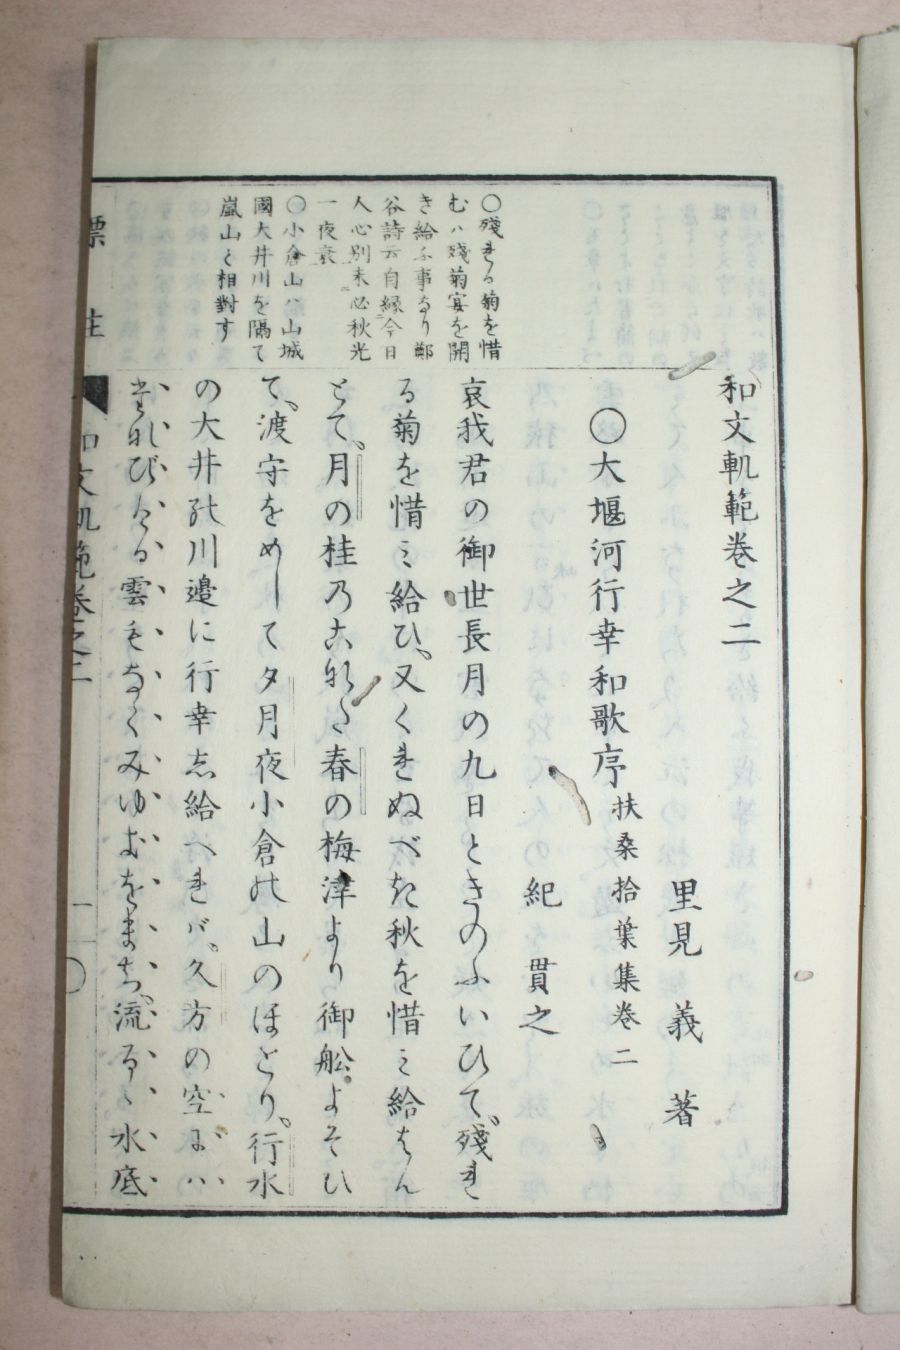 和文軌範卷之二
里見義著
〇大堰河行幸和歌序 扶桑拾葉集卷二
紀貫之
哀我君の御世長月の九日ときのふいひて、殘れ
る菊を惜ミ給ひ、又くれぬべき秋を惜ミ給はん
とて、月の桂乃こなた、春の梅津より御舩よそひ
て、渡守をめして夕月夜小倉の山のほとり、行水
の大井の川邉に行幸志給へれバ、久方の空にハ
たなびける雲もなくみゆきをまち、流るゝ水底
〇殘れる菊を惜
むハ殘菊宴を開
き給ふ事なり鄭
谷詩云自縁今日
人心別未必秋光
一夜衰
〇小倉山ハ山城
國大井川を隔て
嵐山と相對す
標註
和文軌範卷之二
一